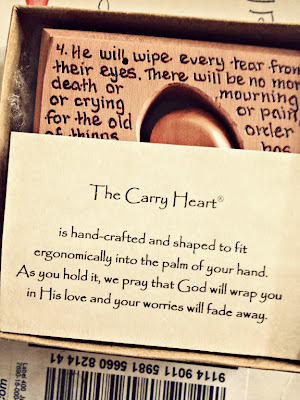 4. He will wipe every tear from
their eyes. There will be no mor
death or mourning
or crying or pain,
for the old order
of things has
The Carry Heart®
is hand-crafted and shaped to fit
ergonomically into the palm of your hand.
As you hold it, we pray that God will wrap you
in His love and your worries will fade away.
9114 9011 5981 5660 8214 41
Label 400 Jan
7690-16-000
.com